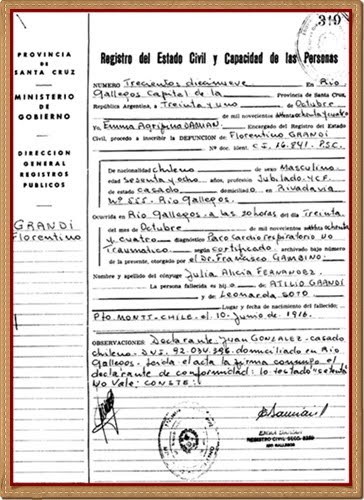 319
PROVINCIA
DE
SANTA CRUZ
MINISTERIO
DE
GOBIERNO
DIRECCION
GENERAL
REGISTROS
PUBLICOS
GRANDI
Florentino
Registro del Estado Civil y Capacidad de las Personas
NUMERO Trecientos diecinueve en Río
Gallegos Capital de la Provincia de Santa Cruz,
República Argentina, a Treinta y uno de Octubre
de mil novecientos ochenta y cuatro
Yo Emma Agripina DAMIAN Encargado del Registro del Estado
Civil, procedo a inscribir la DEFUNCION de Florentino GRANDI
Nº doc. ident. C.I. 16.241. P.S.C.
De nacionalidad chileno de sexo Masculino
edad sesenta y ocho años, profesión Jubilado. YCF.
de estado casado domiciliado en Rivadavia
Nº 555. Río Gallegos.
Ocurrida en Río Gallegos. a las 20 horas del día Treinta
del mes de Octubre de mil novecientos ochenta
y cuatro diagnóstico Paro Cardio respiratorio no
Traumatico según Certificado archivado bajo número
de la presente, otorgado por el Dr. Francisco GAMBINO
Nombre y apellido del cónyuge Julia Alicia FERNANDEZ.
La persona fallecida es hijo de ATILIO GRANDI
y de Leonarda SOTO
Lugar y fecha de nacimiento del fallecido:
Pto. MONTT-CHILE. el 10. junio de 1916.
OBSERVACIONES: Declarante Juan GONZALEZ. casado
chileno. DNI. 92.034.396. domiciliado en Río
Gallegos. leída el acta la firma conmigo el
declarante de conformidad: lo testado "setenta"
No Vale: CONSTE:
EMMA DAMIAN
REGISTRO CIVIL SECC.
RIO GALLEGOS